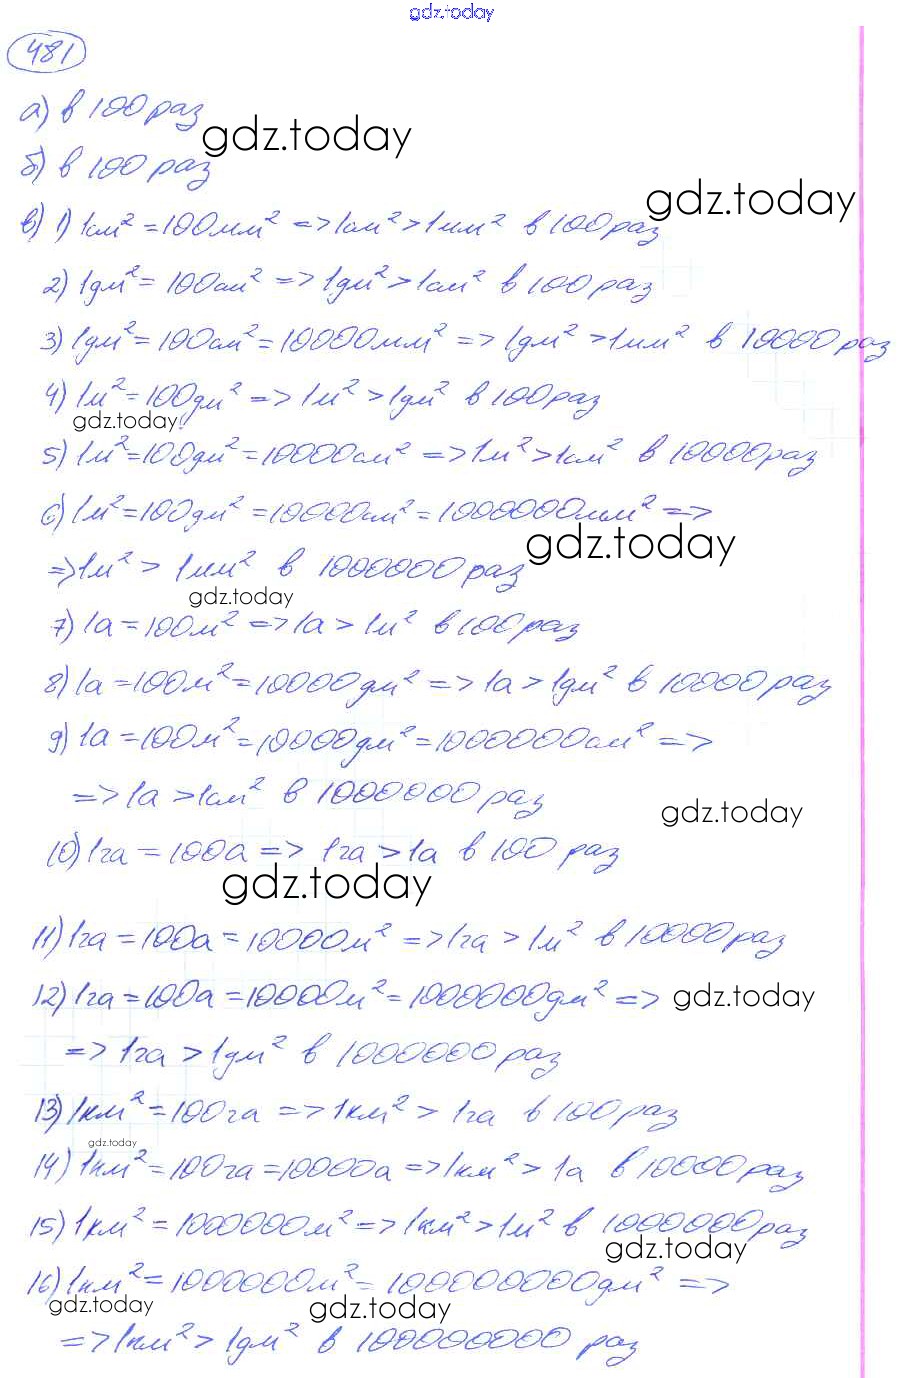 gdz.today
481
а) в 100 раз
gdz.today
б) в 100 раз
gdz.today
в) 1) 1см² = 100мм² => 1см² > 1мм² в 100 раз
2) 1дм² = 100см² => 1дм² > 1см² в 100 раз
3) 1дм² = 100см² = 10000мм² => 1дм² > 1мм² в 10000 раз
4) 1м² = 100дм² => 1м² > 1дм² в 100 раз
gdz.today
5) 1м² = 100дм² = 10000см² => 1м² > 1см² в 10000 раз
6) 1м² = 100дм² = 10000см² = 1000000мм² =>
gdz.today
=> 1м² > 1мм² в 1000000 раз
gdz.today
7) 1а = 100м² => 1а > 1м² в 100 раз
8) 1а = 100м² = 10000дм² => 1а > 1дм² в 10000 раз
9) 1а = 100м² = 10000дм² = 1000000см² =>
=> 1а > 1см² в 1000000 раз
gdz.today
10) 1га = 100а => 1га > 1а в 100 раз
gdz.today
11) 1га = 100а = 10000м² => 1га > 1м² в 10000 раз
12) 1га = 100а = 10000м² = 1000000дм² =>
gdz.today
=> 1га > 1дм² в 1000000 раз
13) 1км² = 100га => 1км² > 1га в 100 раз
gdz.today
14) 1км² = 100га = 10000а => 1км² > 1а в 10000 раз
15) 1км² = 1000000м² => 1км² > 1м² в 1000000 раз
gdz.today
16) 1км² = 1000000м² = 100000000дм² =>
gdz.today
gdz.today
=> 1км² > 1дм² в 100000000 раз